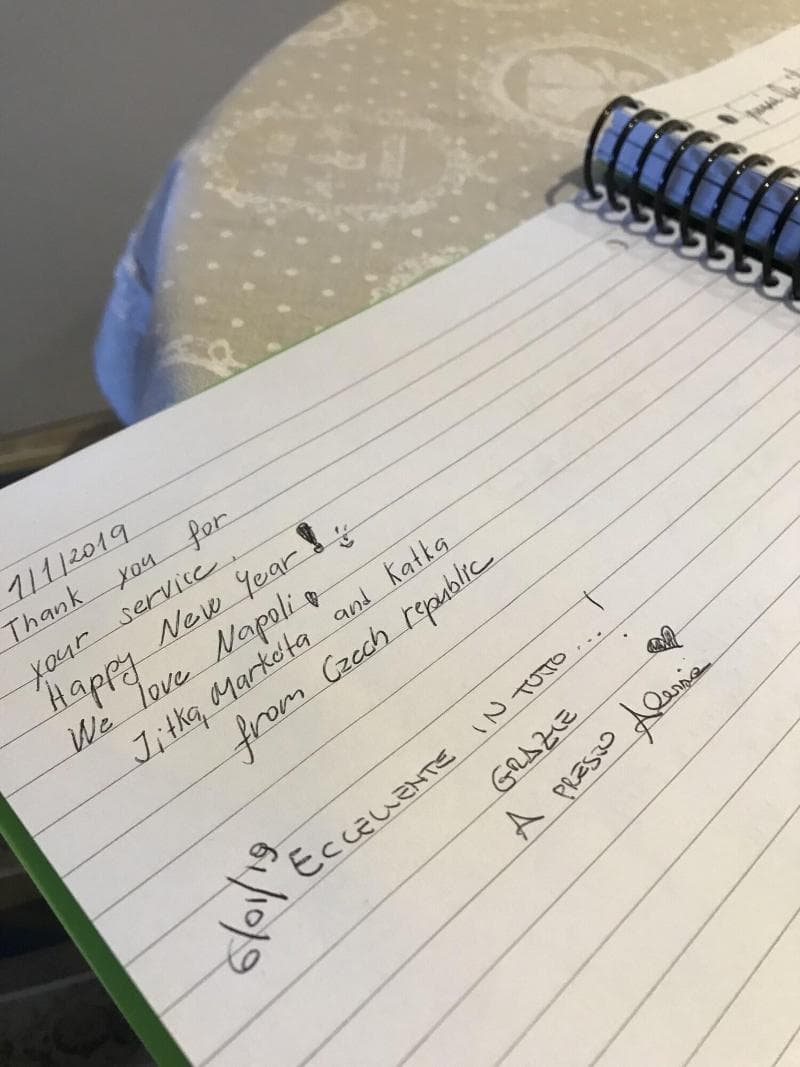 1/1/2019
Thank you for
your service.
Happy New Year!
We love Napoli
Jitka, Markéta and Katka
from Czech republic
6/01/19
ECCELLENTE IN TUTTO...!
GRAZIE
A PRESTO